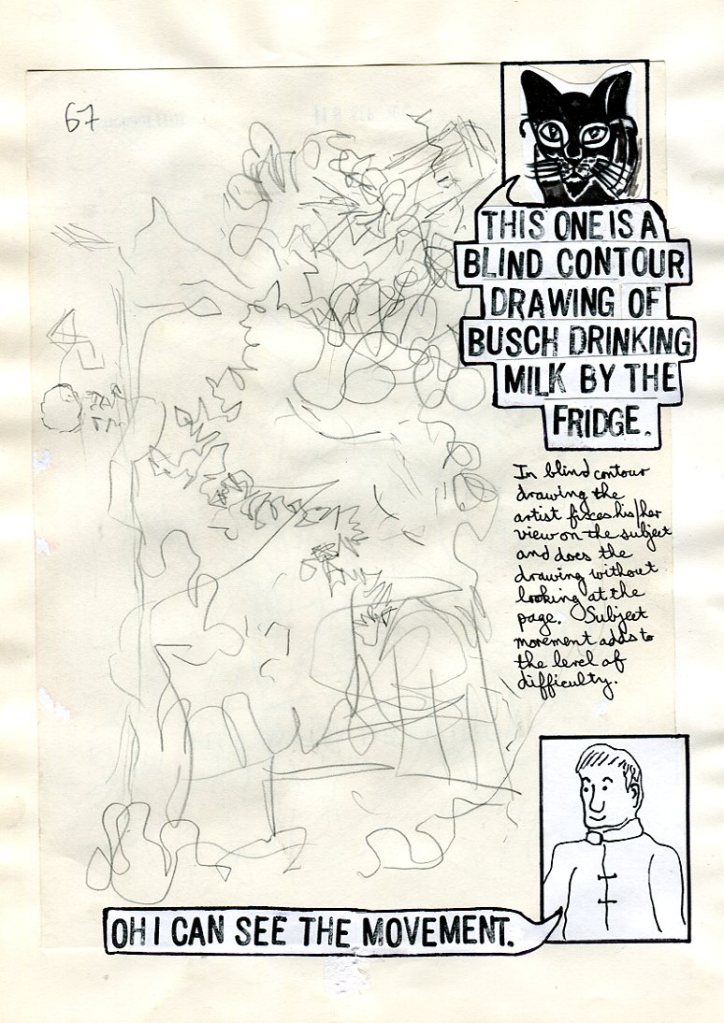 67
THIS ONE IS A
BLIND CONTOUR
DRAWING OF
BUSCH DRINKING
MILK BY THE
FRIDGE.
In blind contour
drawing the
artist fixes his/her
view on the subject
and does the
drawing without
looking at the
page. Subject
movement adds to
the level of
difficulty.
OH I CAN SEE THE MOVEMENT.